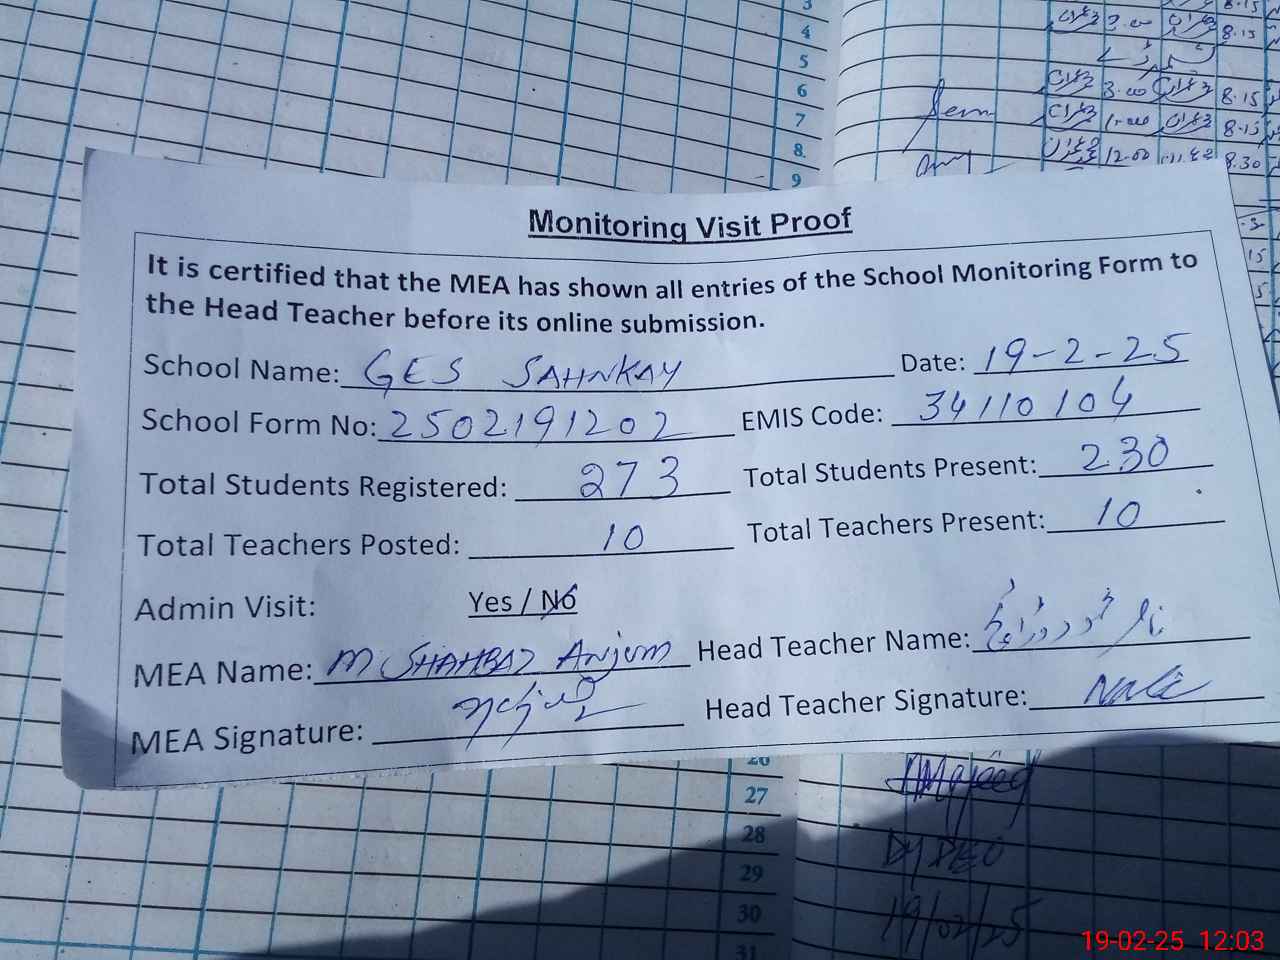 3
4
5
6
7
8.
9
8.15
3.00 8.15
3.00 8.15
1.00 8.15
12.00 8.30
Monitoring Visit Proof
It is certified that the MEA has shown all entries of the School Monitoring Form to
the Head Teacher before its online submission.
School Name: GES SAHNKAY Date: 19-2-25
School Form No: 2502191202 EMIS Code: 34110104
Total Students Registered: 273 Total Students Present: 230
Total Teachers Posted: 10 Total Teachers Present: 10
Admin Visit: Yes / No
MEA Name: M SHAHBAZ Anjum Head Teacher Name:
MEA Signature: Head Teacher Signature:
26
27
28
29
30
31
Dy DEO
19/02/25
19-02-25 12:03